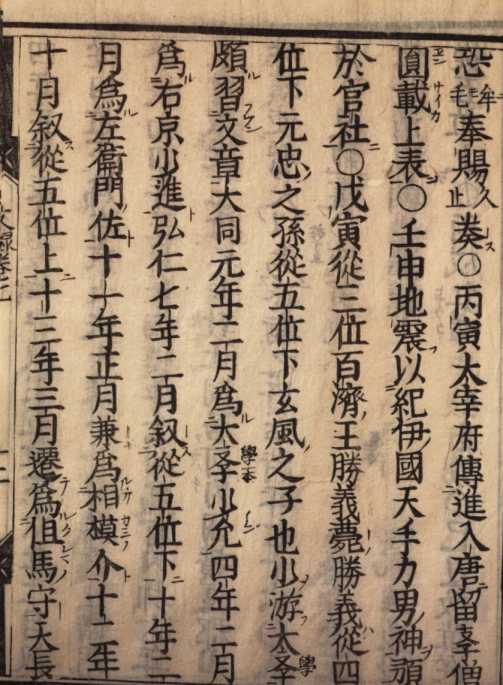 恐牟毛奉賜久止奏〇丙寅大宰府傳進入唐留孝僧
圓載上表〇壬申地震以紀伊國天手力男神預
於官社〇戊寅從三位百濟王勝義薨勝義從四
位下元忠之孫從五位下玄風之子也少游太孝
頗習文章大同元年二月爲大孝少允四年二月
爲右京少進弘仁七年二月叙從五位下十年二
月爲左衛門佐十一年正月兼爲相模介十二年
十月叙從五位上十三年三月遷爲但馬守天長